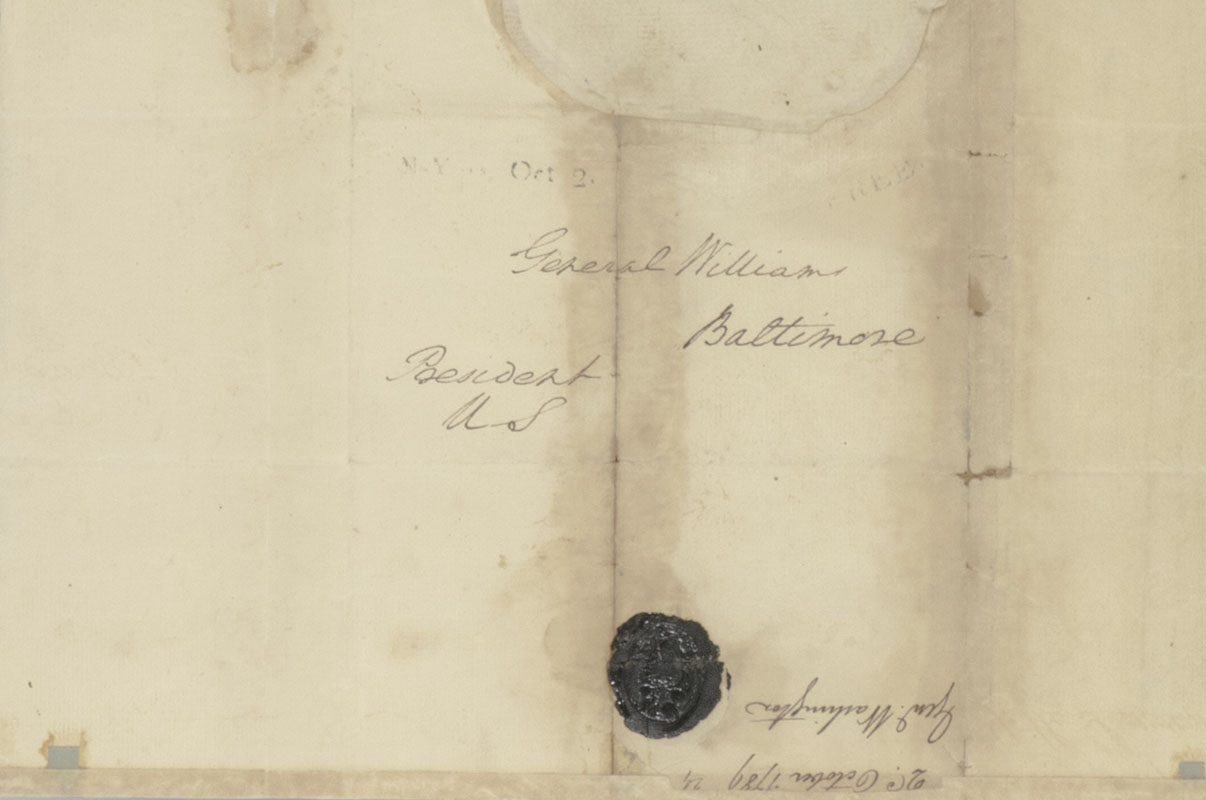 Oct 2.
FREE
General Williams
Baltimore
President
U S
Genl. Washington
2d. October 1789